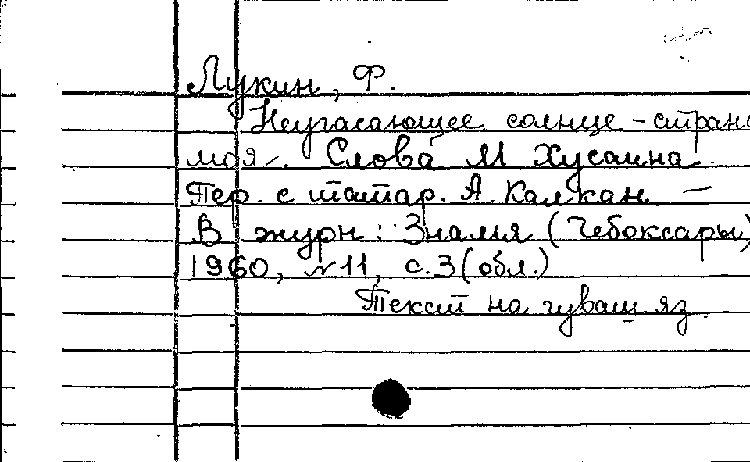 Лукин, Ф.
Неугасающее солнце - стран
моя. Слова М Хусаина
Пер. с татар. А. Калкан. —
В журн: Знамя (Чебоксары)
1960, №11, с.3 (обл.)
Текст на чуваш яз.